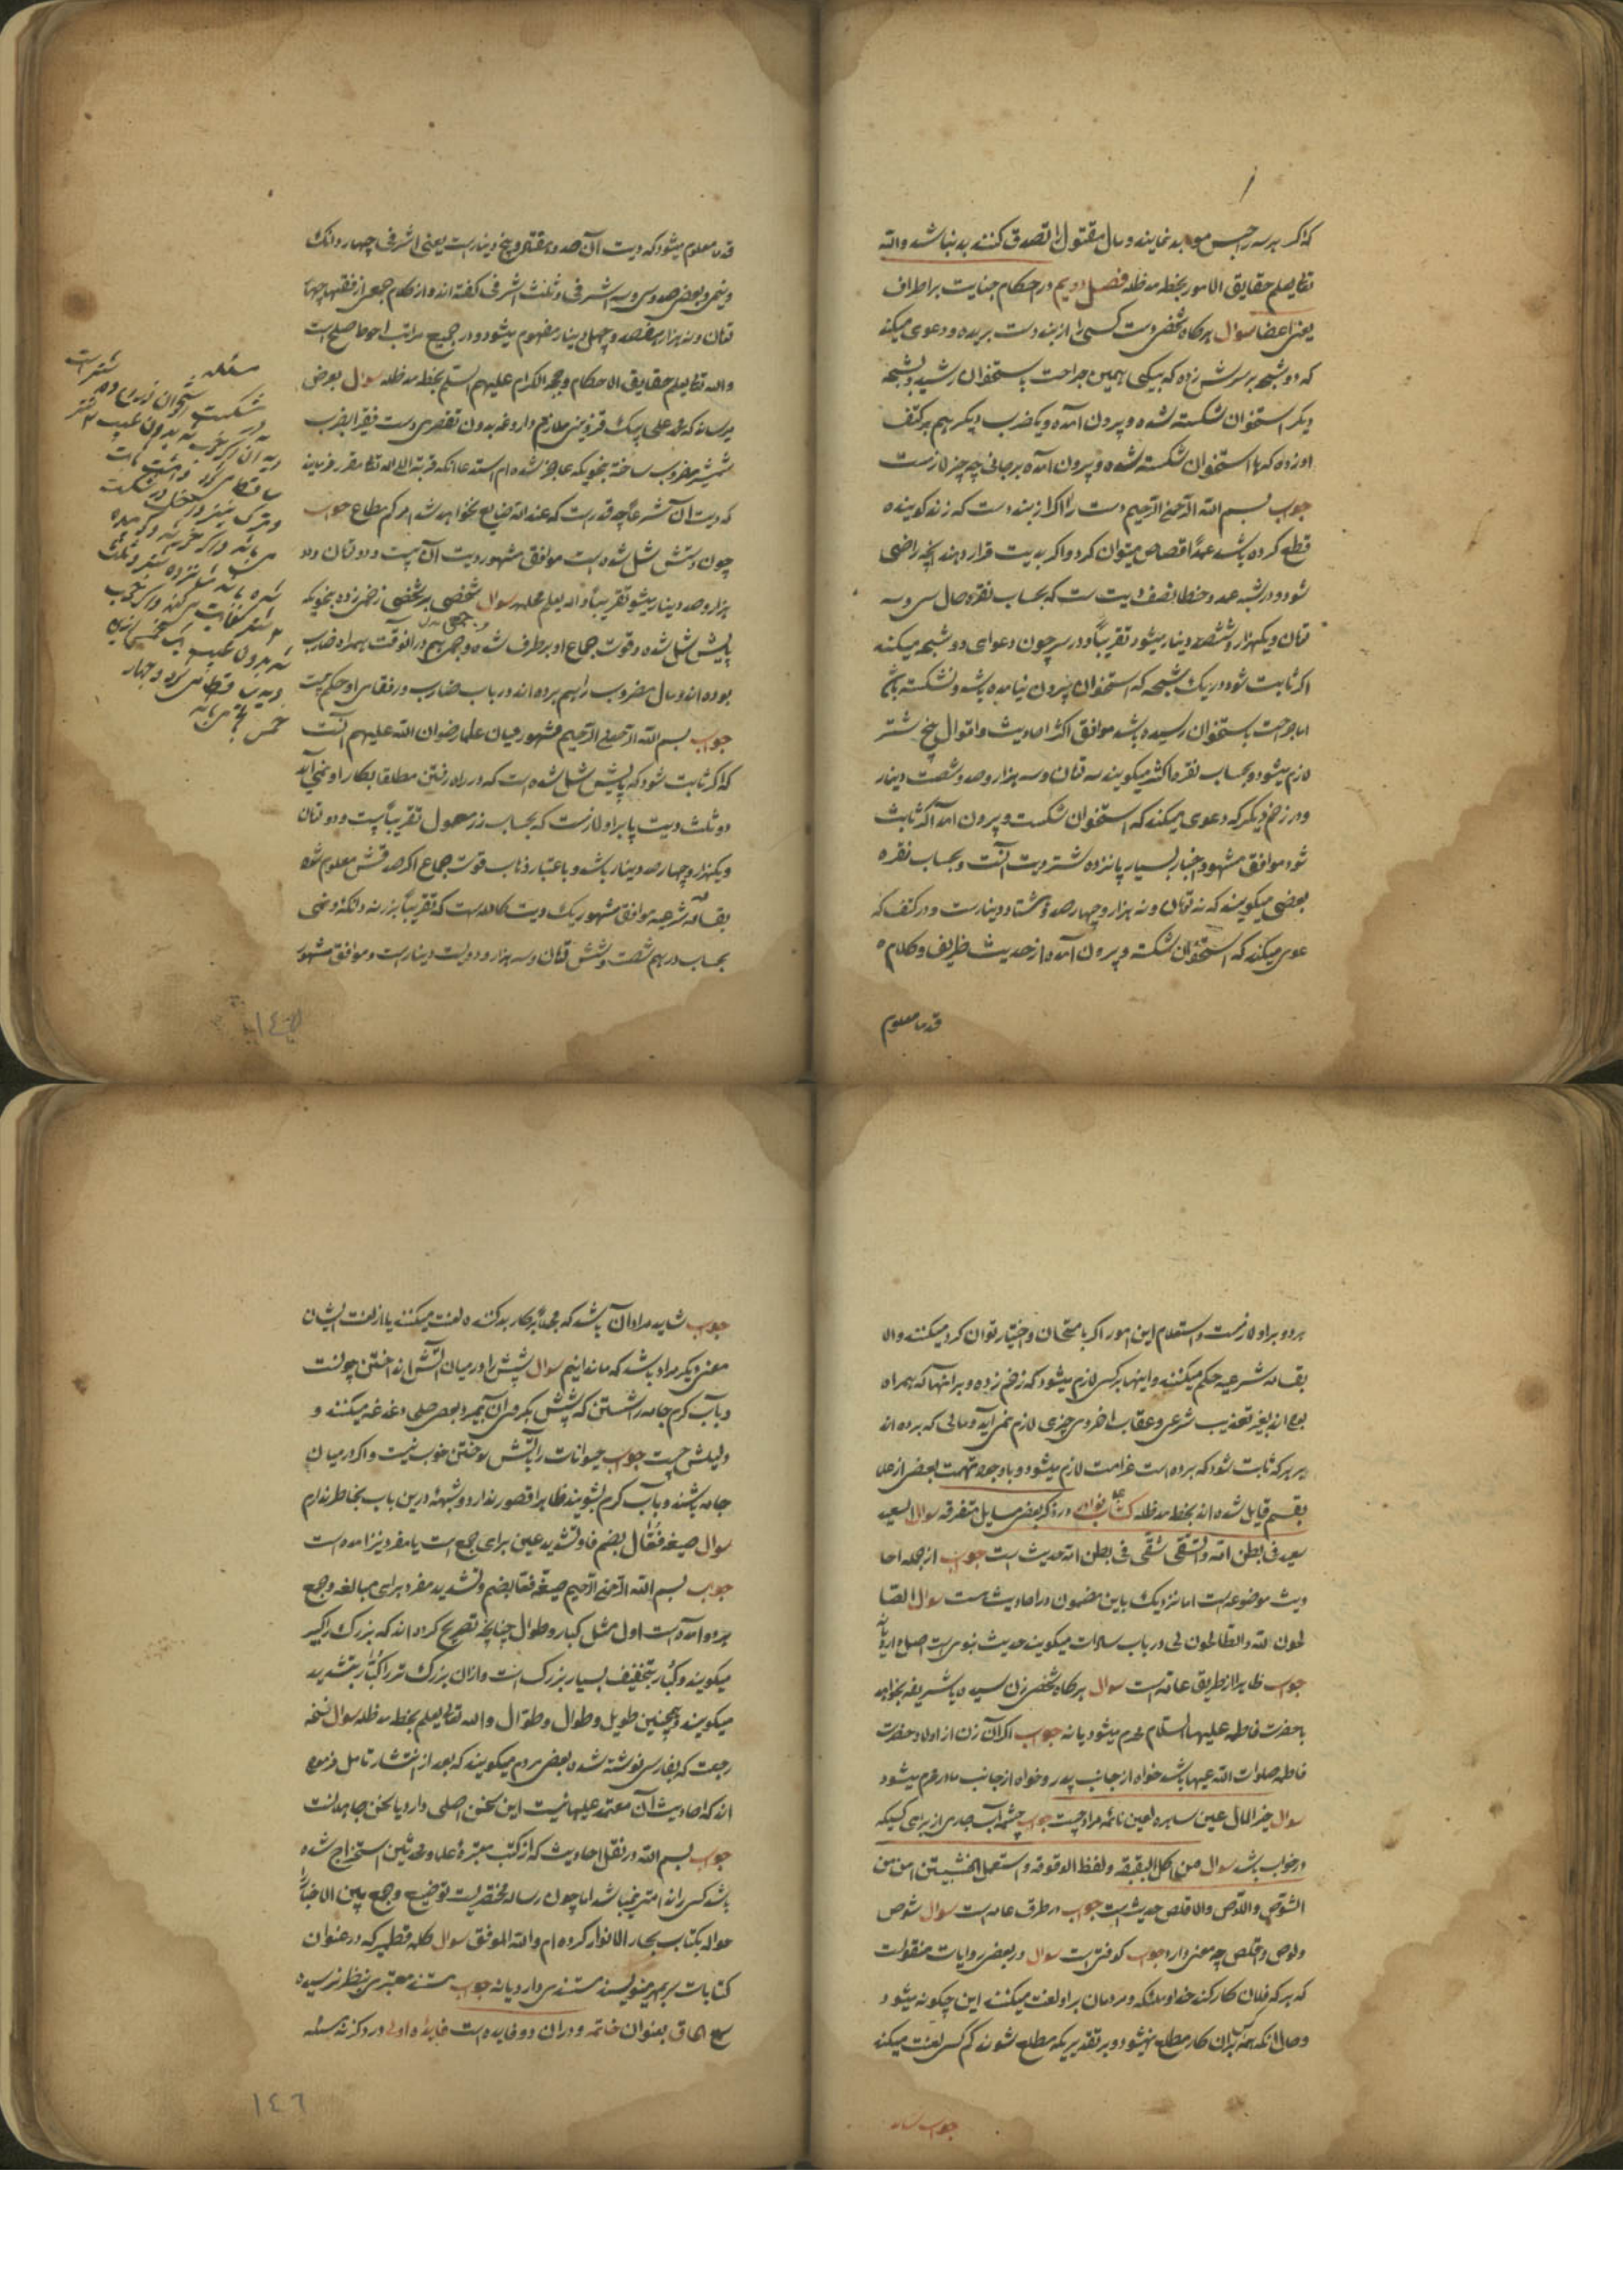 که اگر بر سه حبس مؤبد نمایند و مال مقتول را تصدق کنند بد نباشد والله
تعالی یعلم حقایق الامور بخطه مد ظله فصل دویم در احکام جنایت بر اطراف
یعنی اعضا سوال هرگاه شخصی دست کسی را از بند دست بریده و دعوی میکند
که دو شجه بر سرش زده که بیکی همین جراحت باستخوان رسیده و بشجه
دیگر استخوان شکسته شده و بیرون آمده و یکضرب دیگر هم بر کتف
او زده که استخوان شکسته شده و بیرون آمده بر جانی چه چیز لازمست
جواب بسم الله الرحمن الرحیم دست را اگر از بند دست که زند گویند
قطع کرده باشد عمدا قصاص میتوان کرد و اگر بدیت قرار دهند بآنچه راضی
شود و در شبه عمد و خطا نصف دیت است که بحساب نقره حال سی و سه
تمان و یکهزار و ششصد دینار میشود تقریبا و در سر چون دعوای دو شجه میکند
اگر ثابت شود در یک شجه که استخوان بیرون نیامده باشد و نشکسته باشد
اما جراحت باستخوان رسیده باشد موافق اکثر احادیث و اقوال پنج شتر
لازم میشود و بحساب نقره اکثر میگویند سه تمان و سه هزار و صد و شصت دینار
و در زخم دیگر که دعوی میکند که استخوان شکست و بیرون آمد اگر ثابت
شود موافق مشهور و اخبار بسیار پانزده شتر دیت آنست و بحساب نقره
بعضی میگویند که نه تمان و نه هزار و چهارصد و هشتاد دینار است و در کتف که
عوی میکند که استخوان شکسته و بیرون آمده از حدیث ظریف و کلام
قدما معلوم
قدما معلوم میشود که دیت آن صد و هفتاد و پنج دینار است یعنی اشرفی چهار دانک
و نیمی و بعضی صد و سی و سه اشرفی و ثلث اشرفی گفته اند و از کلام جمعی از فقها چهار
تمان و نه هزار و هفتصد و چهل دینار مفهوم میشود و در جمیع مراتب احوط صلح است
والله تعالی یعلم حقایق الاحکام و حججه الکرام علیهم السلم بخطه مد ظله سوال بعرض
میرساند که محمد علی بیک قزوینی ملازم داروغه بدون تقصیری دست فقیر را بضرب
شمشیر مضروب ساخته بنحویکه عاجز شده ام استدعا آنکه قربة الی الله تعالی مقرر فرمایند
که دیت آن شرعا چه قدر است که عند الله ضایع نخواهد شد امرکم مطاع جواب
چون دستش شل شده است موافق مشهور دیت آن بیست و دو تمان و دو
هزار و صد دینار میشود تقریبا والله یعلم بخطه سوال شخصی بر شخصی زخمی زده بنحویکه
پایش شل شده و قوت جماع او برطرف شده و جمعی هم در آنوقت بهمراه ضارب
بوده اند و مال مضروب را هم برده اند در باب ضارب و رفقای او حکم چیست
جواب بسم الله الرحمن الرحیم مشهور میان علما رضوان الله علیهم آنست
که اگر ثابت شود که پایش شل شده است که در راه رفتن مطلقا بکار او نمی آید
دو ثلث دیت پا بر او لازمست که بحساب زر معمول تقریبا بیست و دو تمان
و یکهزار و چهارصد دینار باشد و باعتبار ذهاب قوت جماع اگر صدقش معلوم شود
بقسامه شرعیه موافق مشهور یک دیت کامله است که تقریبا بزر نه دانک و نیمی
بحساب درهم شصت و شش تمان و سه هزار و دویست دینار است و موافق مشهور
مسئله
هر دو بر او لازمست و استعلام این امور اگر بامتحان و اختیار توان کرد میکنند والا
بقسامه شرعیه حکم میکنند و اینها بر کسی لازم میشود که زخم زده و بر آنها که همراه
بوده اند بغیر تعذیب شرعی و عقاب اخروی چیزی لازم نمی آید و مالی که برده اند
بر هر که ثابت شود که برده است غرامت لازم میشود و با وجود تهمت بعضی از علما
بقسم قایل شده اند بخطه مد ظله کتاب نوادر در ذکر بعضی مسایل متفرقه سوال السعید
سعید فی بطن امه والشقی شقی فی بطن امه حدیث است جواب از جمله احا
دیث موضوعه است اما نزدیک باین مضمون در احادیث هست سوال الصا
لحون لله والطالحون لی در باب سادات میگویند حدیث نبویست اصل دارد یا نه
جواب ظاهرا از طریق عامه است سوال هرگاه شخصی زن سیده یا شریفه بخواهد
با حضرت فاطمه علیها السلام محرم میشود یا نه جواب اگر آن زن از اولاد حضرت
فاطمه صلوات الله علیها باشد خواه از جانب پدر و خواه از جانب مادر محرم میشود
سوال خیر المال عین ساهره لعین نائمه مراد چیست جواب چشمه آب جاری از برای کسیکه
در خواب باشد سوال من اکل البقیقه و لفظ الدقوقه و استعمل الخشبتین امن من
الشوص واللوص والاعلص حدیث است جواب در طرق عامه است سوال شوص
و لوص و علص چه معنی دارد جواب کوفتی است سوال در بعضی روایات منقولست
که هر که فلان کار کند خدا و ملائکه و مردمان بر او لعنت میکنند این چگونه میشود
و حال آنکه همه کس بر آن کار مطلع نمیشود و بر تقدیریکه مطلع شوند کم کسی لعنت میکند
جواب شاید
جواب شاید مراد آن باشد که مجملا بر کار بد کننده لعنت میکنند یا از لعنت ایشان
معنی دیگر مراد باشد که ما ندانیم سوال شپش را در میان آتش انداختن چونست
و بآب گرم جامه را شستن که شپش بگیرد و در آن بمیرد بعضی صلحا دغدغه میکنند و
دلیلش چیست جواب حیوانات را بآتش سوختن خوب نیست و اگر در میان
جامه باشند و بآب گرم بشویند ظاهرا قصور ندارد و شبهه درین باب بخاطر ندارم
سوال صیغه فعّال بضم فا و تشدید عین برای جمع است یا مفرد نیز آمده است
جواب بسم الله الرحمن الرحیم صیغه فعّال بضم و تشدید مفرد برای مبالغه و جمع
هر دو آمده است اول مثل کبار و طوال چنانچه تصریح کرده اند که بزرگ را کبیر
میگویند و کبار بتخفیف بسیار بزرگ است و از آن بزرگ تر را کبّار بتشدید
میگویند و همچنین طویل و طوال و طوّال والله تعالی یعلم بخطه مد ظله سوال نسخه
رجعت که بفارسی نوشته شده بعضی مردم میگویند که بعد از انتشار تامل فرموده
اند که احادیث آن معتمد علیها نیست این سخن اصلی دارد یا سخن جاهلانست
جواب بسم الله در نقل احادیث که از کتب معتبره علما و محدثین استخراج شده
باشد کسی را ندامتی نمیباشد اما چون رساله مختصریست توضیح و جمع بین الاخبار را
حواله بکتاب بحار الانوار کرده ام والله الموفق سوال کلمه قطمیر که در عنوان
کتابات بر مهر مینویسند مستندی دارد یا نه جواب مستند معتبری بنظر نرسیده
الحاق بعنوان خاتمه و در آن دو فایده است فایده اولی در ذکر نه مسئله
١٤٦